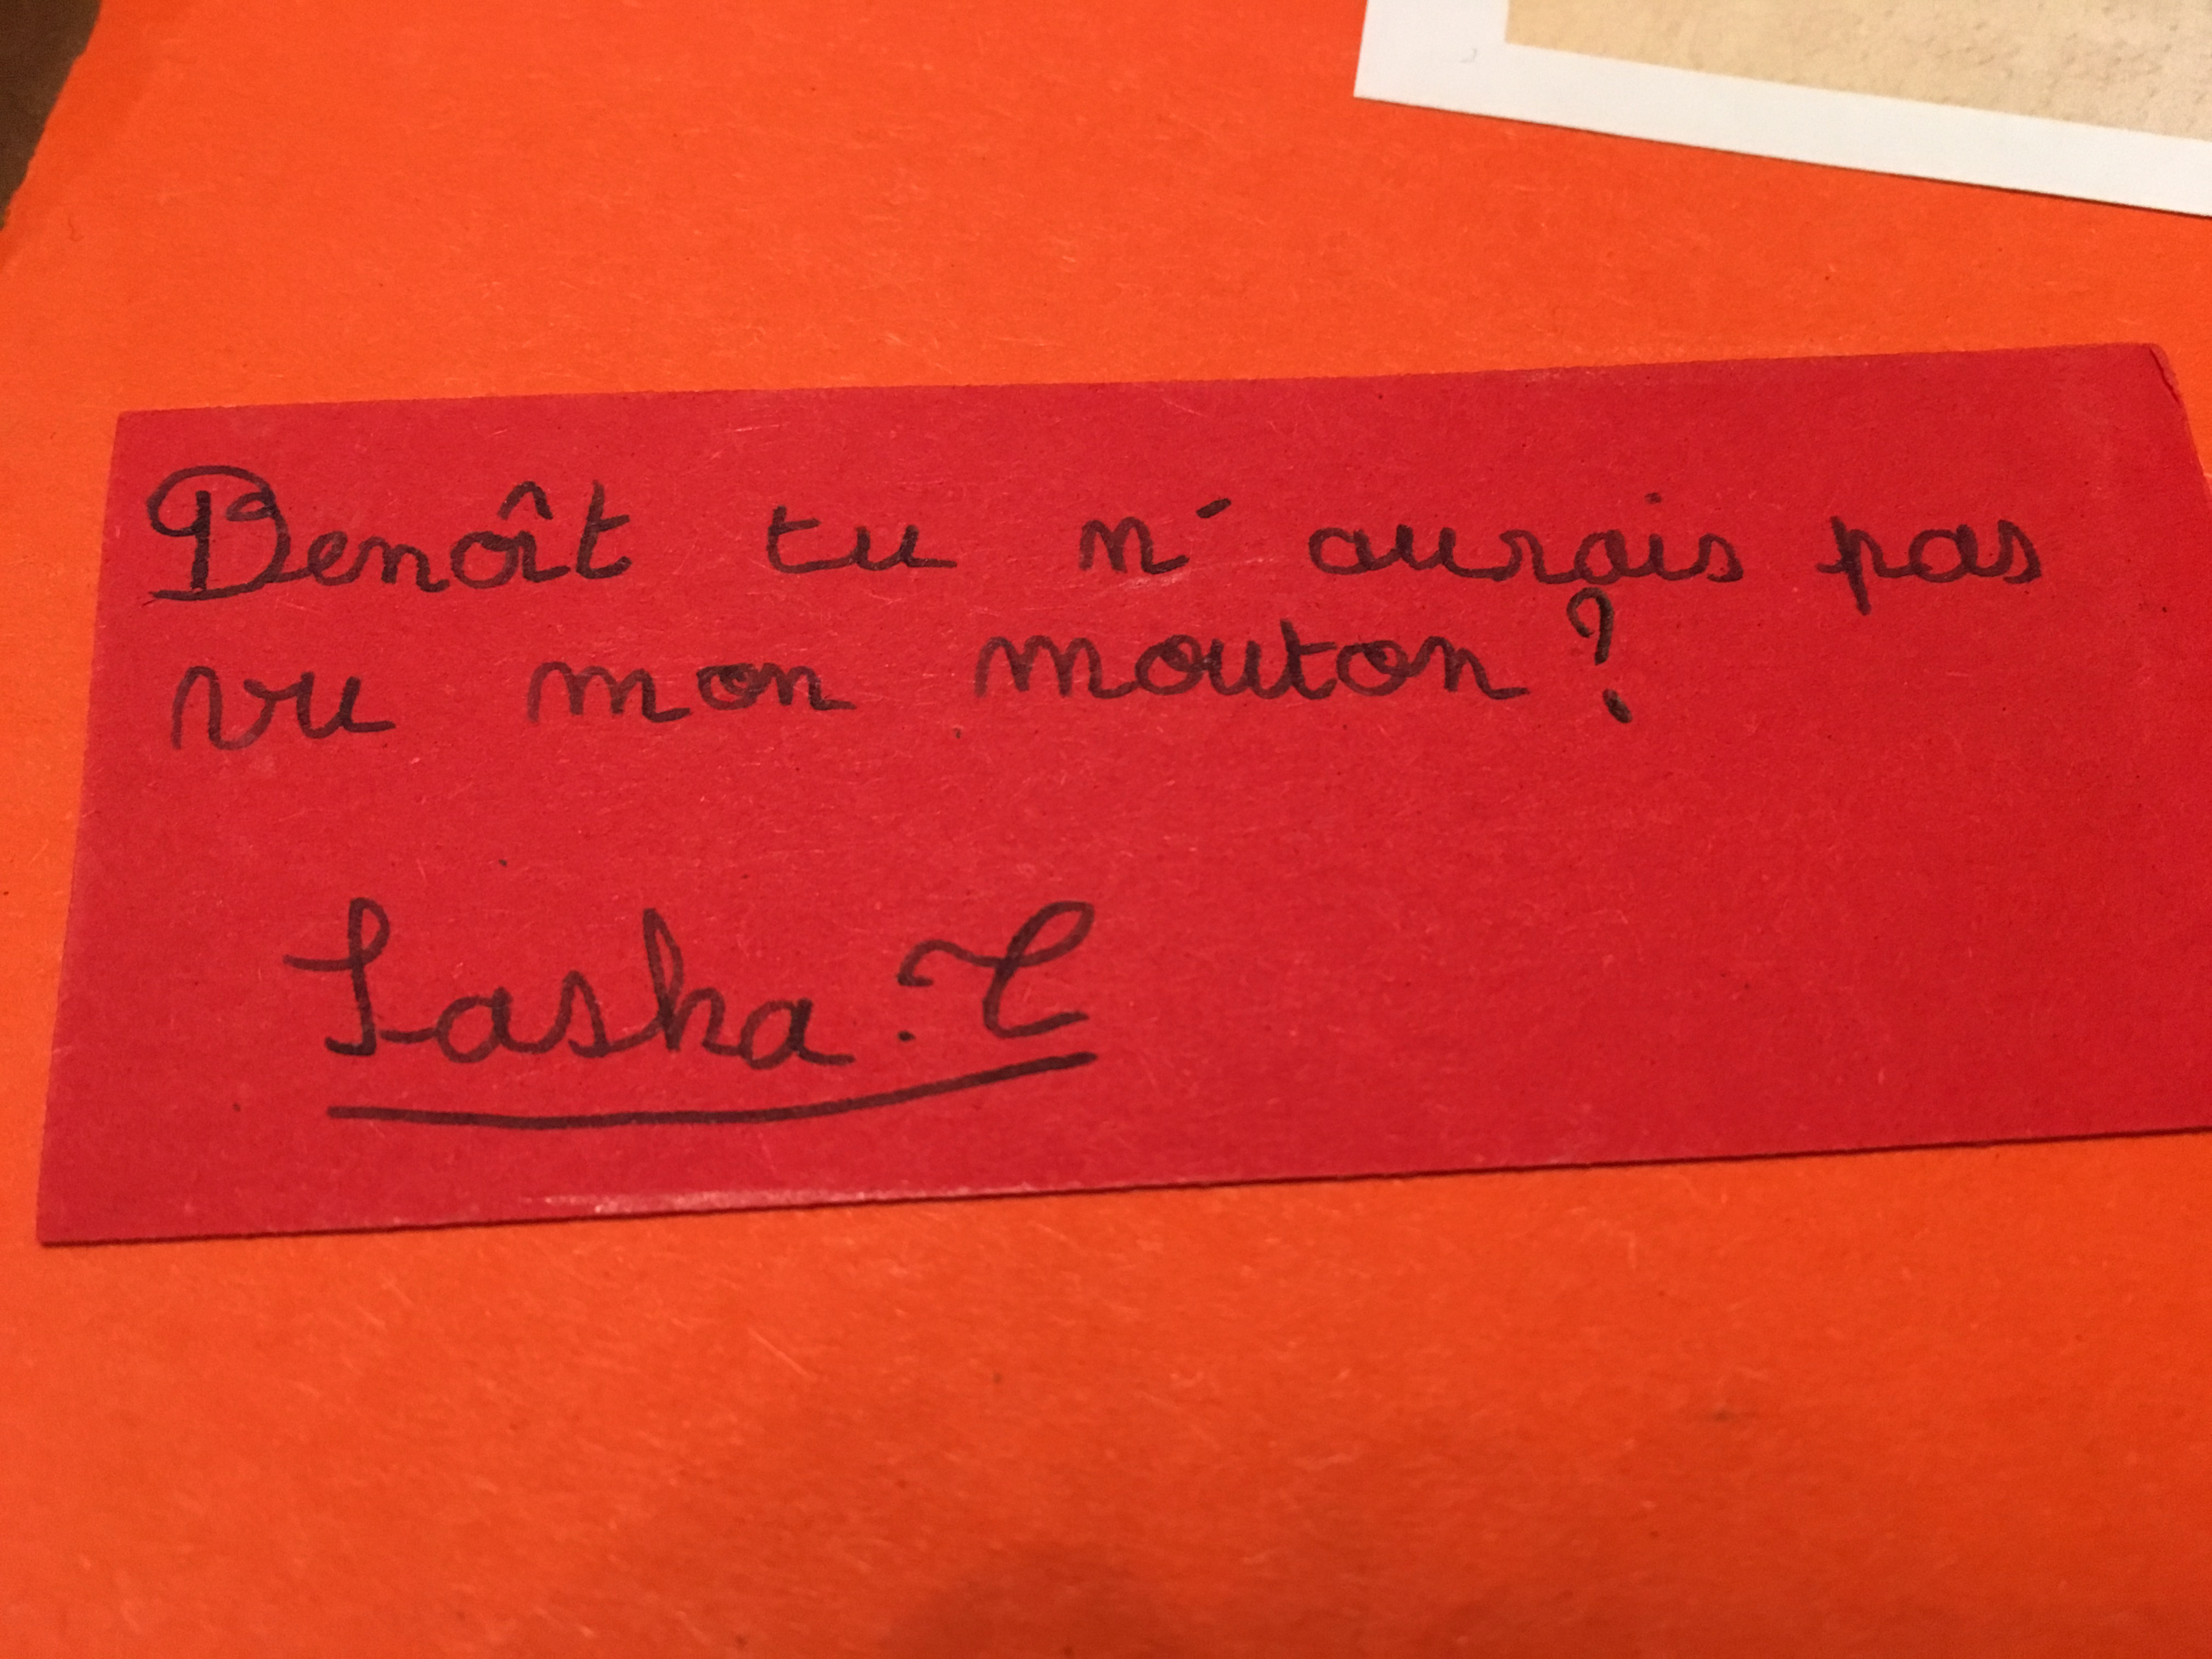 Benoît tu n'aurais pas
vu mon mouton ?
Sasha.T